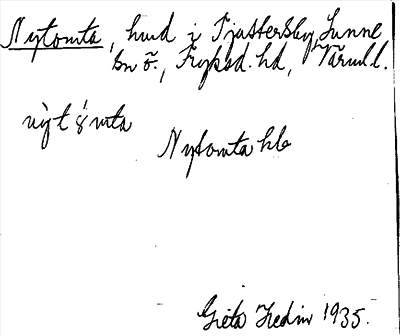 Nytomta, hmd i Tjustersby, Sunne
sn ö., Fryksd. hd, Värml.
nỳt ò̀mta
Nytomta hb
Greta Hedin 1935.